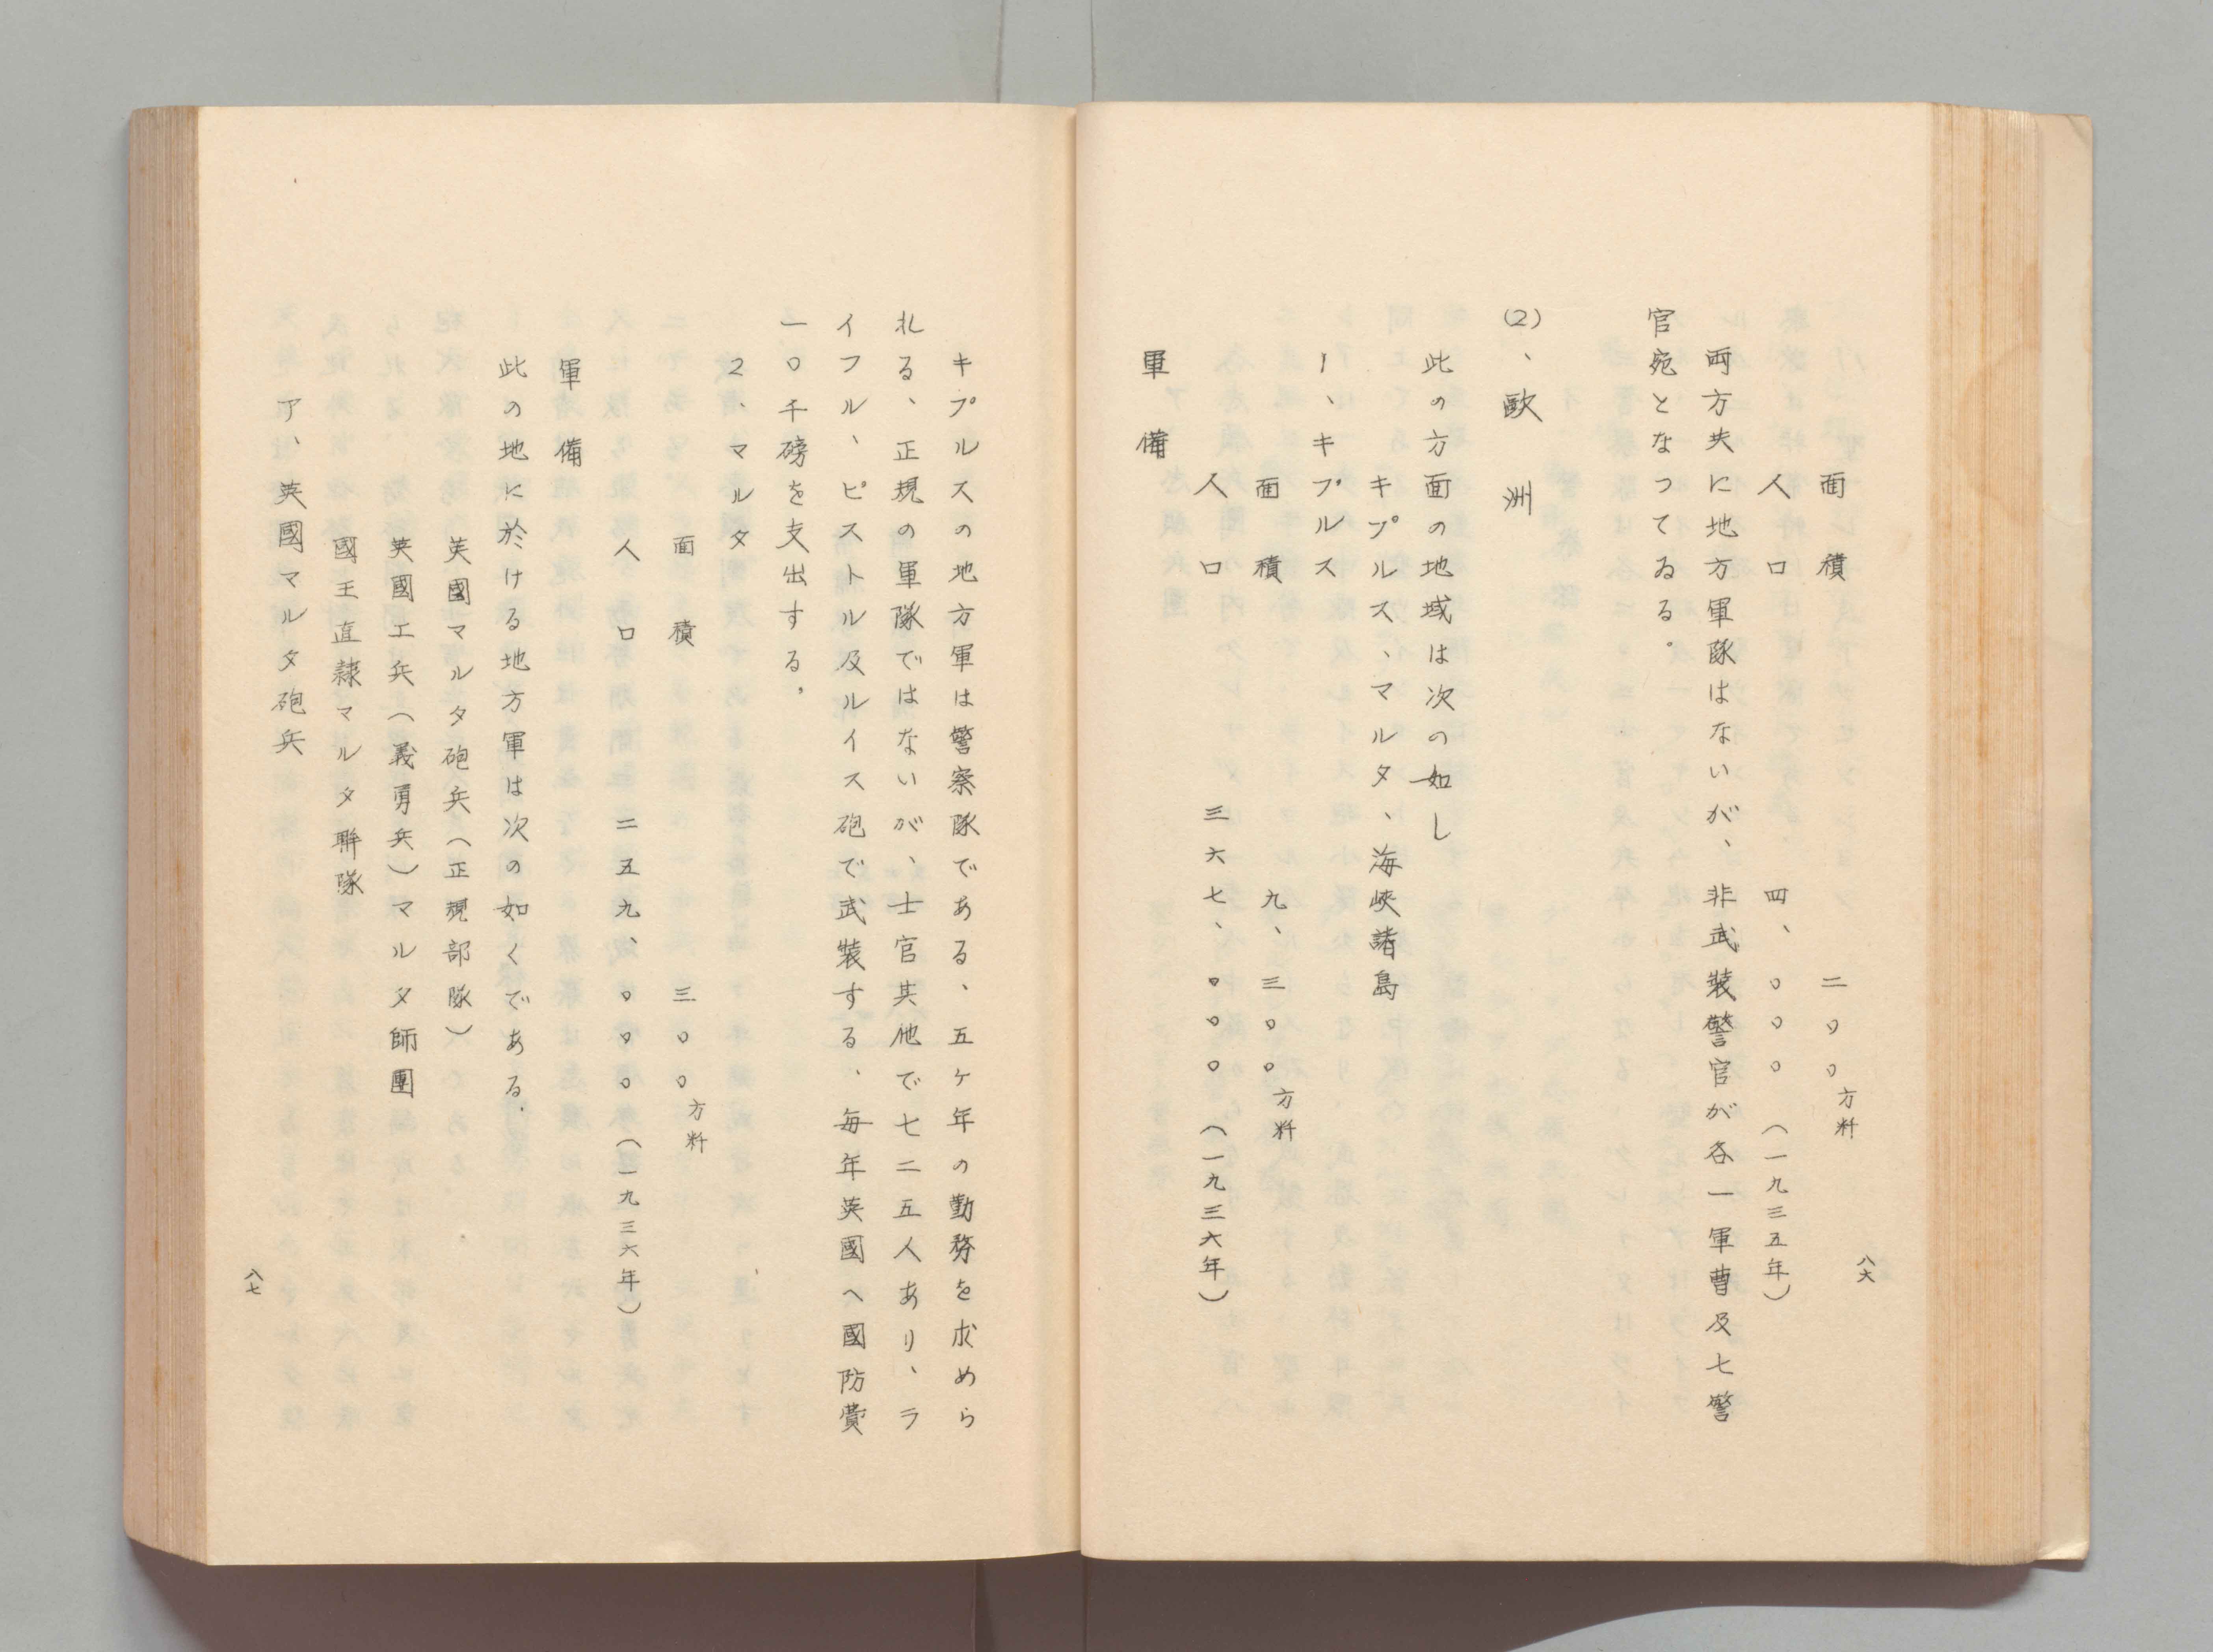 面積　二〇〇方粁
人口　四、〇〇〇（一九三五年）
両方共に地方軍隊はないが、非武裝警官が各一軍曹及七警
官宛となつてゐる。
(2)、歐洲
此の方面の地域は次の如し
キプルス、マルタ、海峽諸島
1、キプルス
面積　九、三〇〇方粁
人口　三六七、〇〇〇（一九三六年）
軍備
八六
キプルスの地方軍は警察隊である、五ヶ年の勤務を求めら
れる、正規の軍隊ではないが、士官其他で七二五人あり、ラ
イフル、ピストル及ルイス砲で武裝する、毎年英國へ國防費
一〇千磅を支出する。
2、マルタ
面積　三〇〇方粁
人口　二五九、〇〇〇（一九三六年）
軍備
此の地に於ける地方軍は次の如くである．
英國マルタ砲兵（正規部隊）
英國工兵（義勇兵）マルタ師團
國王直隷マルタ聯隊
ア、英國マルタ砲兵
八七